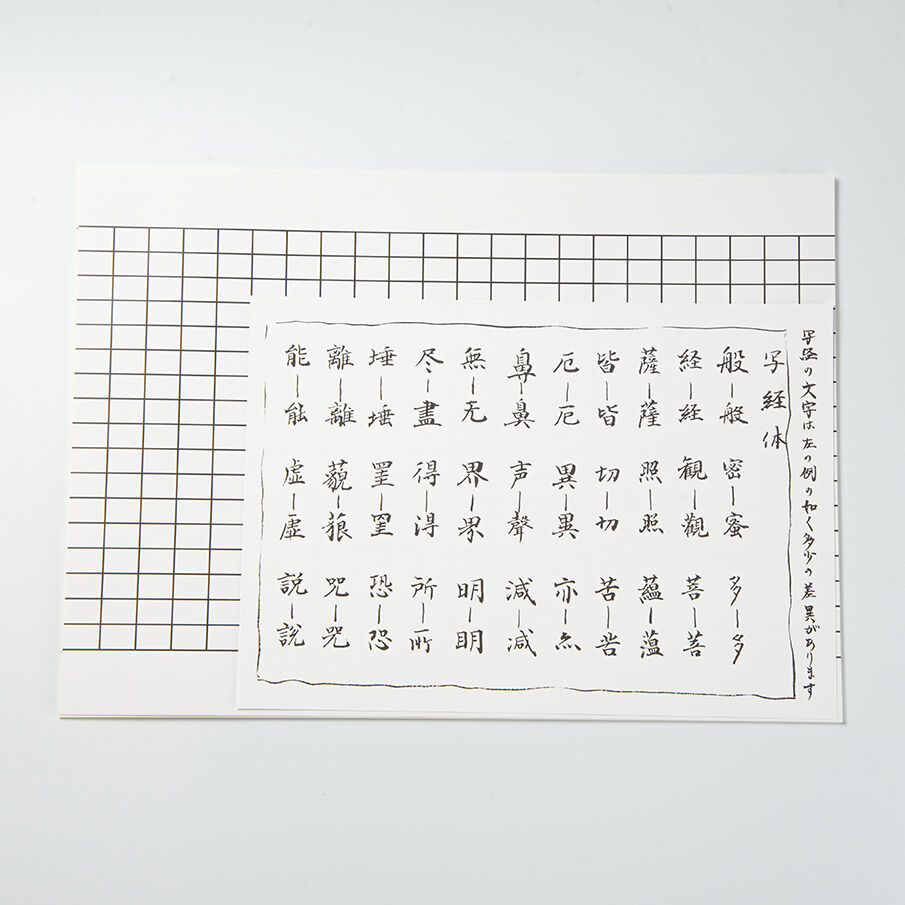 写経の文字は左の例の如く多少の差異があります
写経体
般―般 密―蜜 多―多
経―経 観―觀 菩―菩
薩―薩 照―照 蘊―薀
皆―皆 切―切 苦―苦
厄―厄 異―異 亦―亦
鼻―鼻 声―聲 減―減
無―无 界―界 明―眀
尽―盡 得―得 所―所
埵―埵 罣―罣 恐―恐
離―離 藐―藐 咒―咒
能―能 虚―虚 説―説